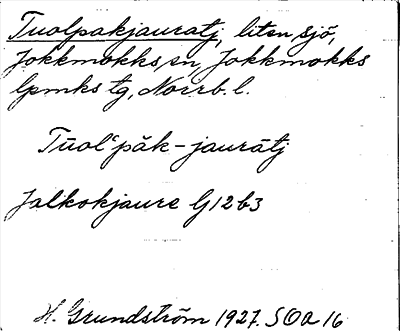 Tuolpakjauratj, liten sjö,
Jokkmokks sn, Jokkmokks
lpmks tg, Norrb. l.
Tūolʿpăk-jaurātj
Jalkokjaure G12b3
H. Grundström 1927. SOA 16